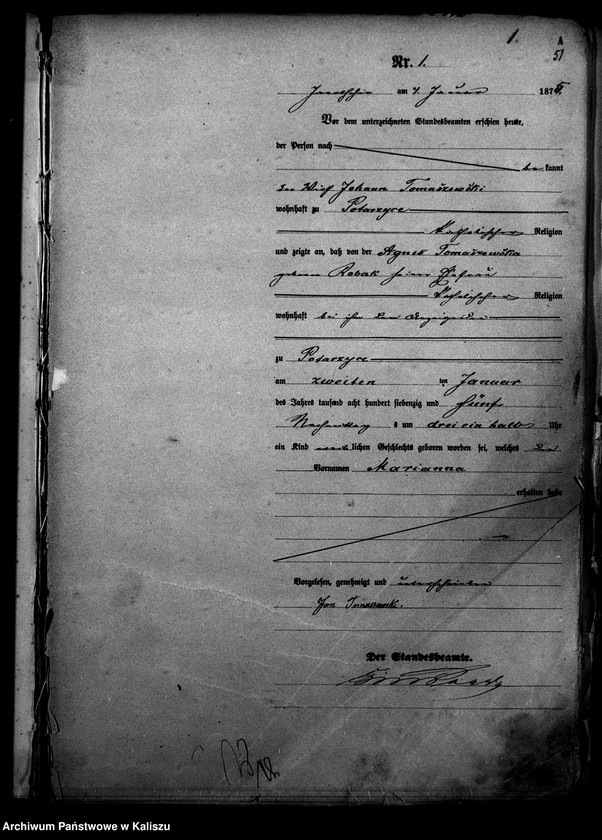 1.
A
51
Nr. 1.
am 4. Januar 1875.
Vor dem unterzeichneten Standesbeamten erschien heute,
der Person nach
be kannt
der Wirth Johann Tomaszewski
wohnhaft zu Potarzyce
katholischer Religion
und zeigte an, daß von der Agnes Tomaszewska
geborene Robak seiner Ehefrau
katholischer Religion
wohnhaft bei ihm dem Anzeigenden
zu Potarzyce
am zweiten ten Januar
des Jahres tausend acht hundert siebenzig und fünf
Nachmittag s um drei ein halb Uhr
ein Kind weib lichen Geschlechts geboren worden sei, welches den
Vornamen Marianna
erhalten habe
Vorgelesen, genehmigt und unterschrieben
Jan Tomaszewski.
Der Standesbeamte.
Archiwum Państwowe w Kaliszu